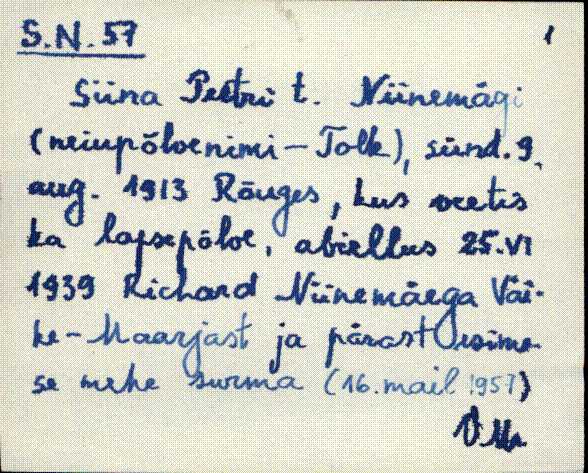 S.N. 57 1
Siina Peetri t. Niinemägi
(neiupõlvenimi – Tolk), sünd. 9.
aug. 1913 Rõuges, kus veetis
ka lapsepõlve, abiellus 25.VI
1939 Richard Niinemäega Väi-
ke-Maarjast ja pärast esime-
se mehe surma (16. mail 1957)